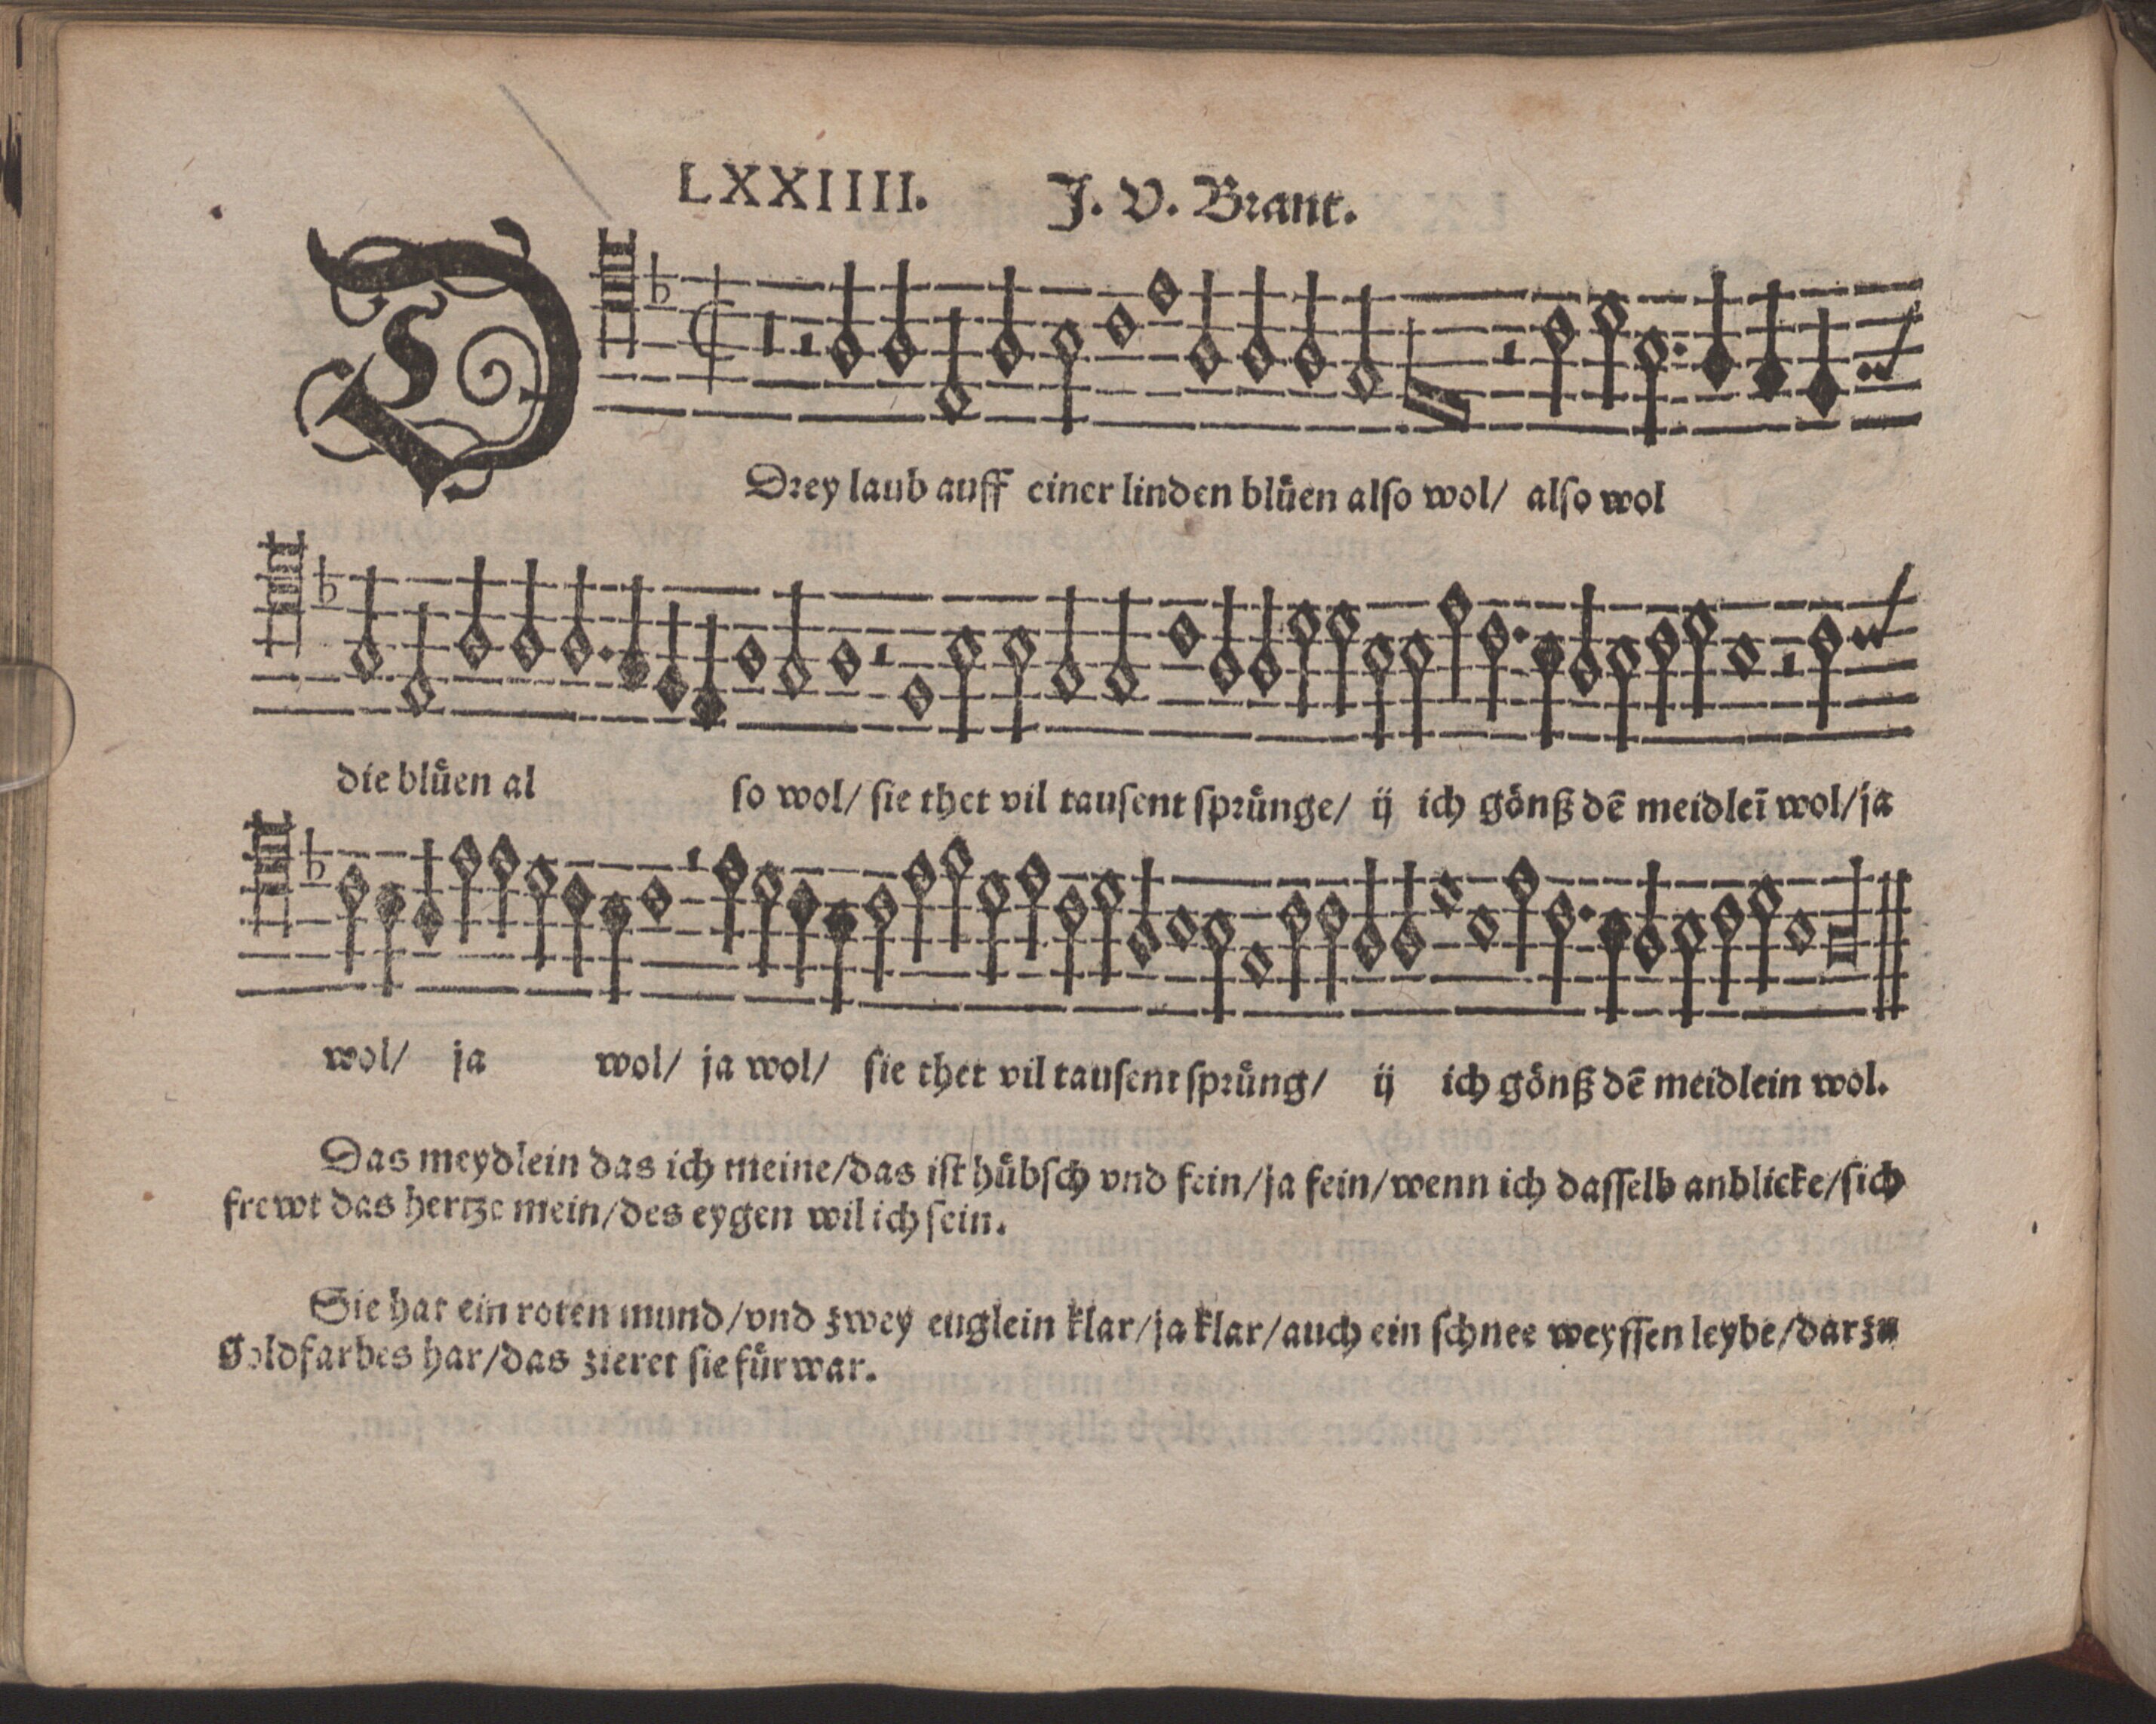 LXXIIII. J. V. Brant.
D
Drey laub auff einer linden blüen also wol/ also wol
die blüen al so wol/ sie thet vil tausent sprünge/ ij ich gönß dē meidleī wol/ja
wol/ ja wol/ ja wol/ sie thet vil tausent sprüng/ ij ich gönß dē meidlein wol.
Das meydlein das ich meine/das ist hübsch vnd fein/ja fein/wenn ich dasselb anblicke/sich
frewt das hertze mein/des eygen wil ich sein.
Sie hat ein roten mund/vnd zwey euglein klar/ja klar/auch ein schnee weyssen leybe/darzu
Goldfarbes har/das zieret sie fürwar.